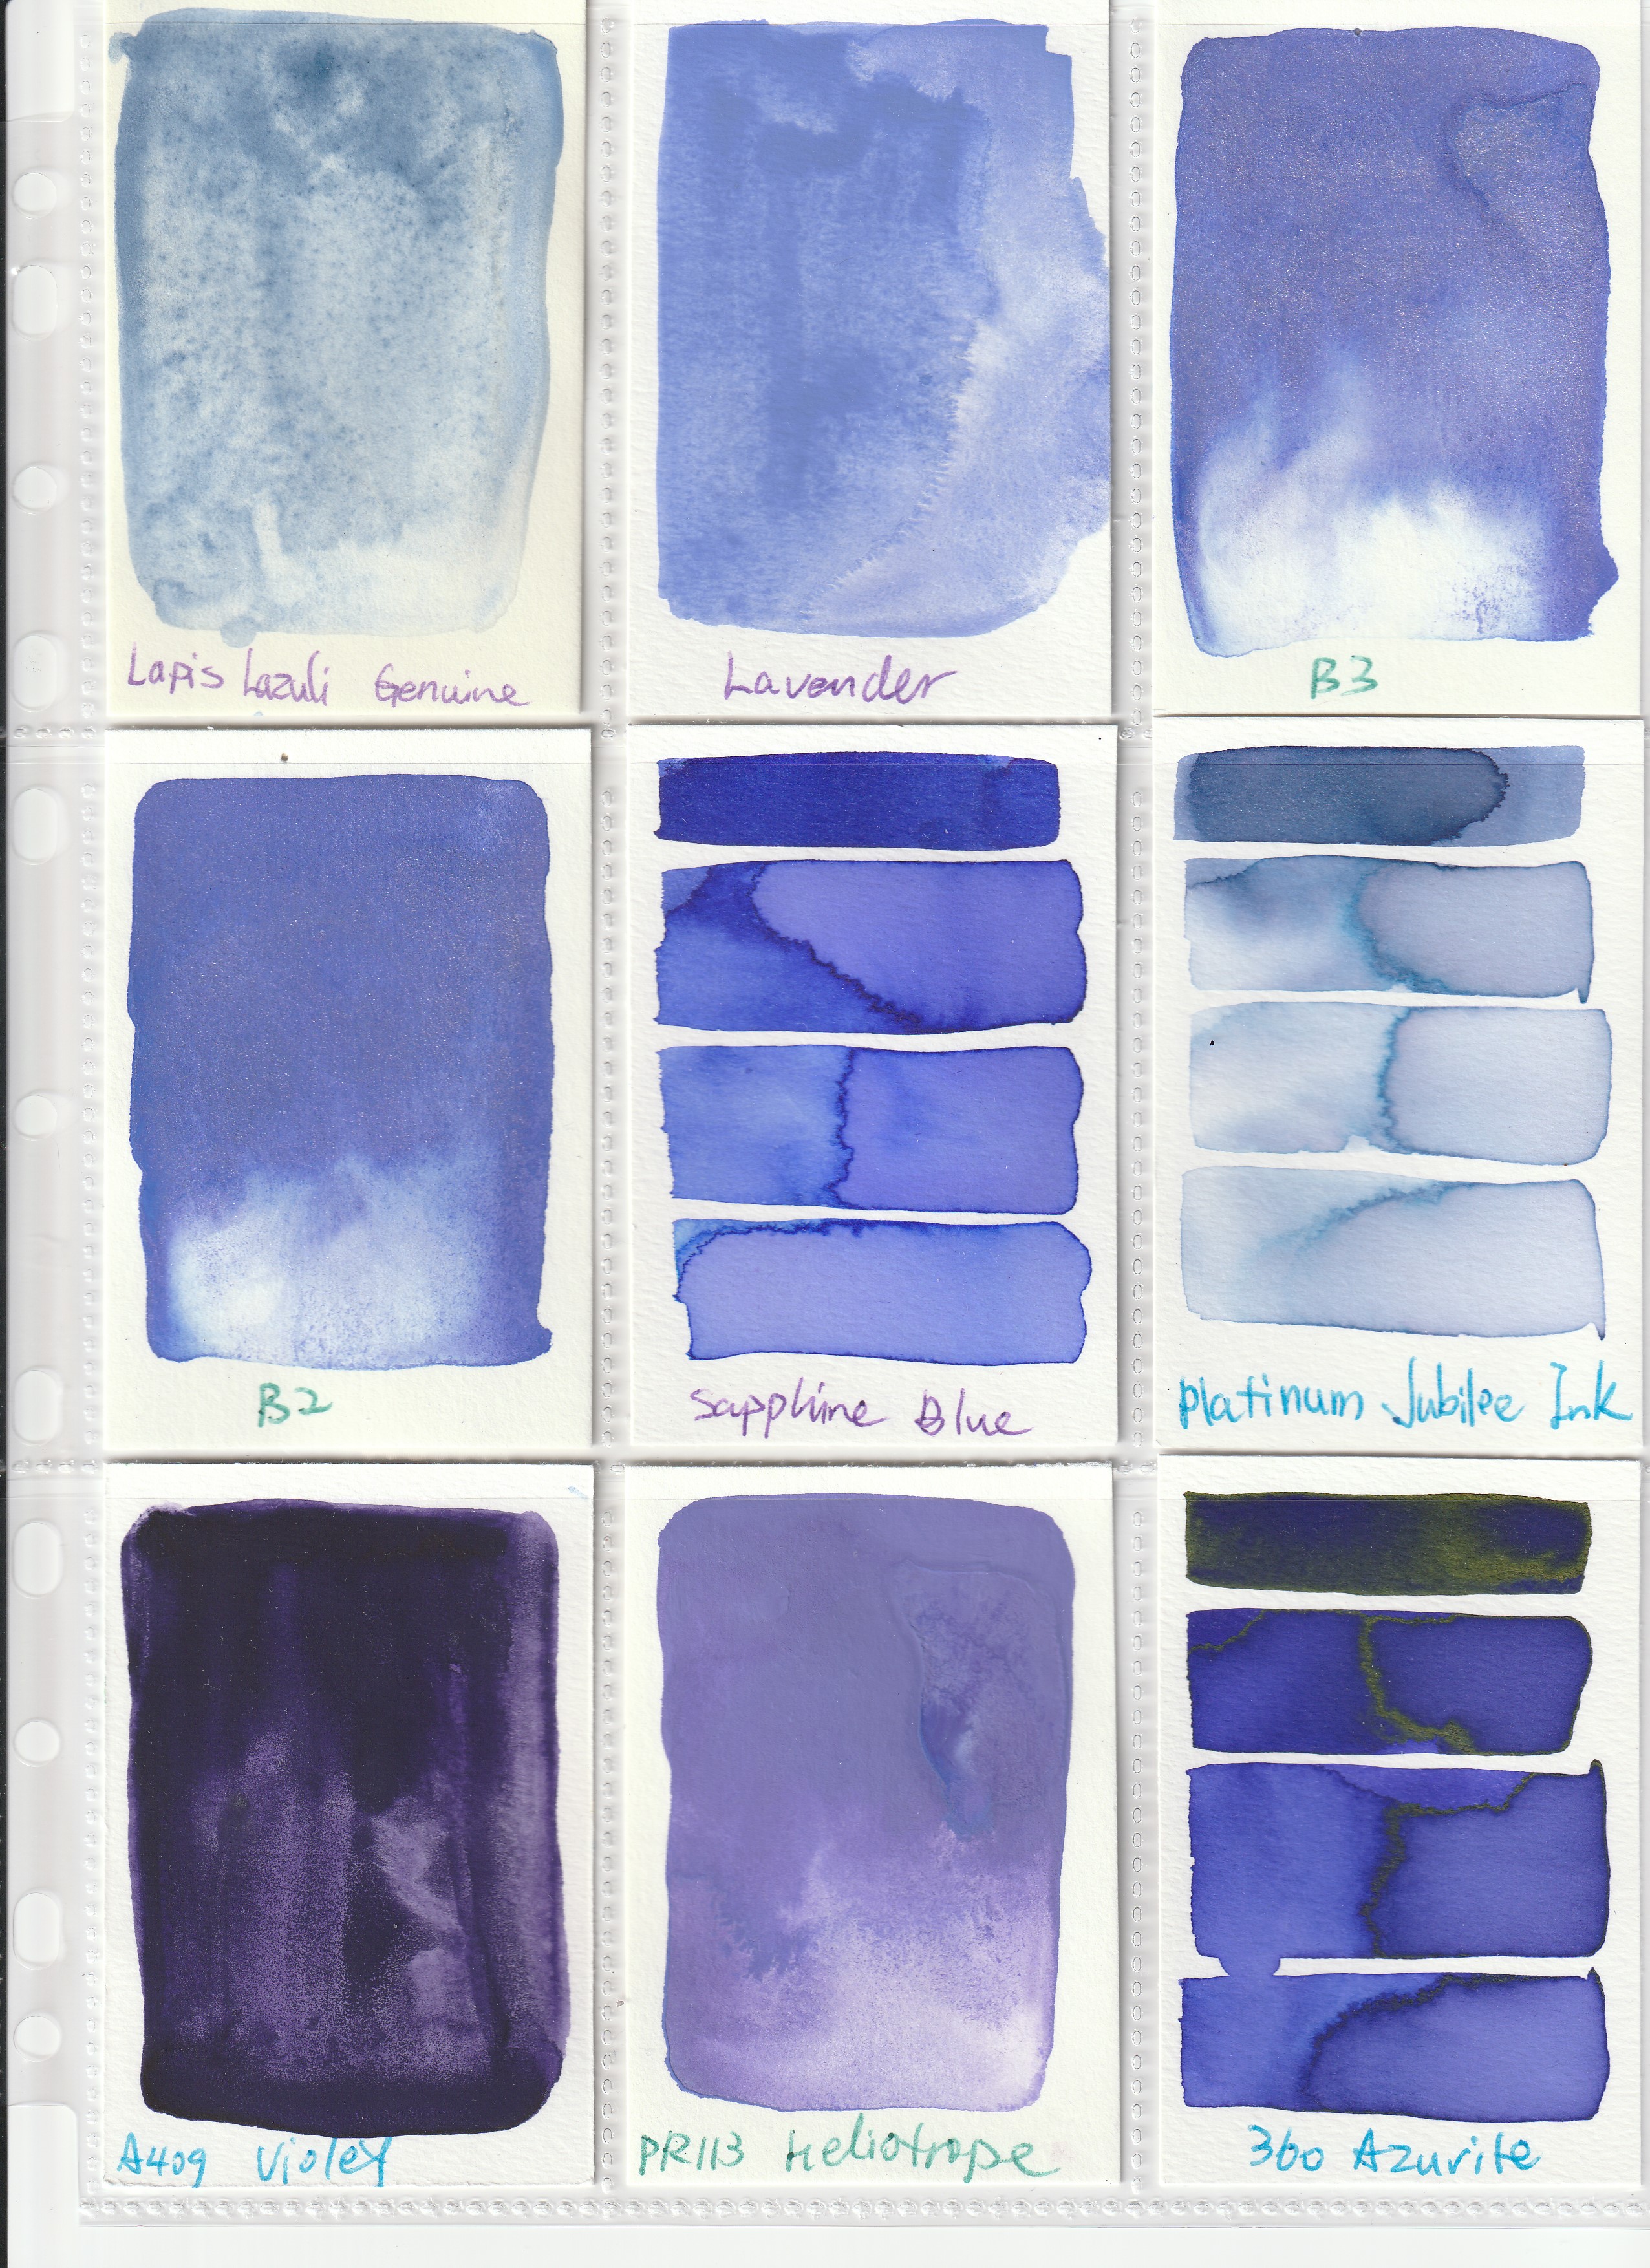 Lapis Lazuli Genuine
Lavender
B3
B2
Sapphine Blue
Platinum Jubilee Ink
A409 Violet
PR113 Heliotrope
360 Azurite